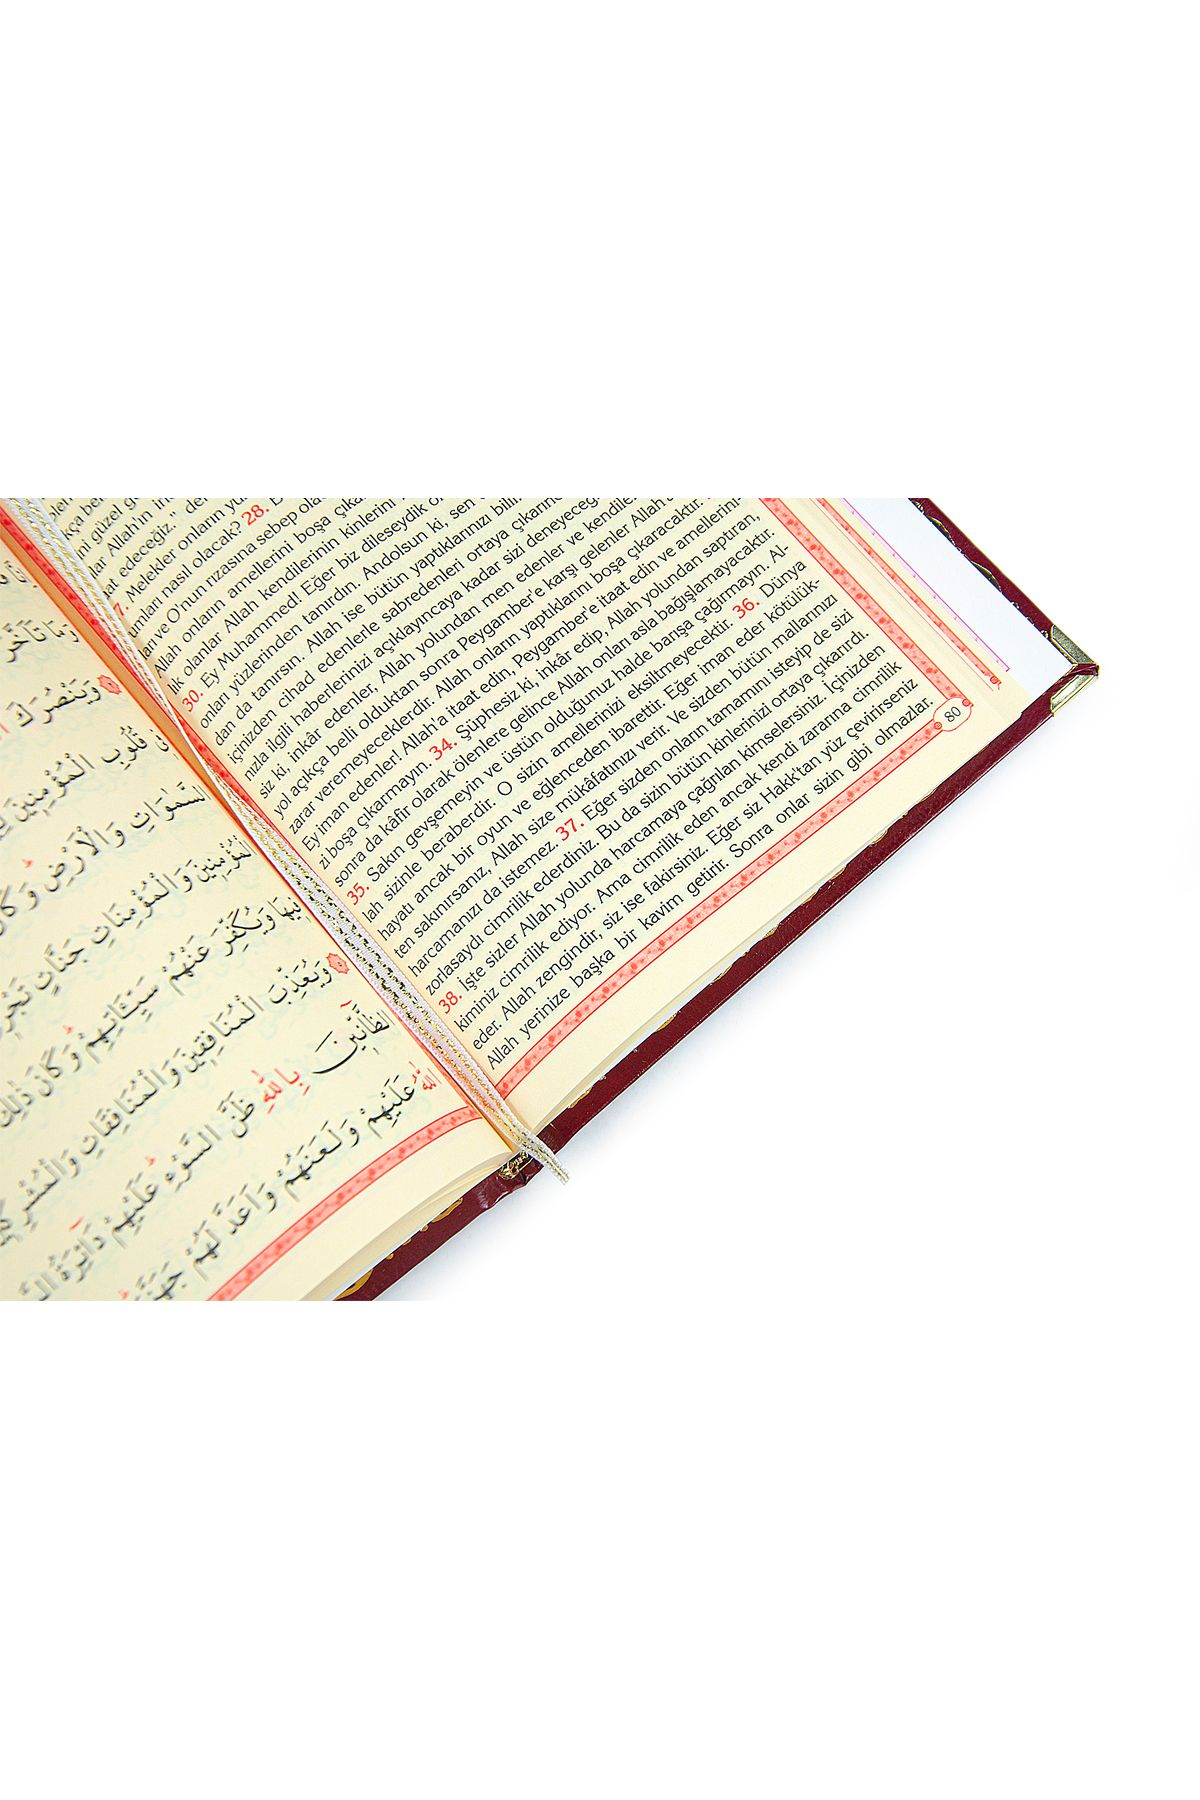 وَمَا تَاَخَّرَ
وَيَنْصُرَكَ
قُلُوبِ الْمُؤْمِنِينَ
السَّمٰوَاتِ وَالْاَرْضِ وَكَانَ
الْمُؤْمِنِينَ وَالْمُؤْمِنَاتِ جَنَّاتٍ تَجْرِي
وَيُكَفِّرَ عَنْهُمْ سَيِّـَٔاتِهِمْ وَكَانَ ذٰلِكَ
وَيُعَذِّبَ الْمُنَافِقِينَ وَالْمُنَافِقَاتِ وَالْمُشْرِكِينَ
الظَّٓانِّينَ بِاللّٰهِ ظَنَّ السَّوْءِ عَلَيْهِمْ دَٓائِرَةُ
اللّٰهُ عَلَيْهِمْ وَلَعَنَهُمْ وَاَعَدَّ لَهُمْ جَهَنَّمَ
ni güzel
lar Allah'ın
at edeceğiz." 
Melekler onların
umları nasıl olacak? 28.
lar) ve O'nun rızasına sebep
Allah onların amellerini boşa
lik olanlar Allah kendilerinin kinlerini
30. Ey Muhammed! Eğer biz dileseydik
onları yüzlerinden tanırdın. Andolsun ki, sen
dan da tanırsın. Allah ise bütün yaptıklarınızı
içinizden cihad edenlerle sabredenleri ortaya
nızla ilgili haberlerinizi açıklayıncaya kadar sizi deneyeceğ
siz ki, inkâr edenler, Allah yolundan men edenler ve kendile
yol açıkça belli olduktan sonra Peygamber'e karşı gelenler Allah'a
zarar veremeyeceklerdir. Allah onların yaptıklarını boşa çıkaracaktır.
Ey iman edenler! Allah'a itaat edin, Peygamber'e itaat edin ve amellerini-
zi boşa çıkarmayın. 34. Şüphesiz ki, inkâr edip, Allah yolundan saptıran,
sonra da kâfir olarak ölenlere gelince Allah onları asla bağışlamayacaktır.
35. Sakın gevşemeyin ve üstün olduğunuz halde barışa çağırmayın. Al-
lah sizinle beraberdir. O sizin amellerinizi eksiltmeyecektir. 36. Dünya
hayatı ancak bir oyun ve eğlenceden ibarettir. Eğer iman eder kötülük-
ten sakınırsanız, Allah size mükâfatınızı verir. Ve sizden bütün mallarınızı
harcamanızı da istemez. 37. Eğer sizden onların tamamını isteyip de sizi
zorlasaydı cimrilik ederdiniz. Bu da sizin bütün kinlerinizi ortaya çıkarırdı.
38. İşte sizler Allah yolunda harcamaya çağrılan kimselersiniz. İçinizden
kiminiz cimrilik ediyor. Ama cimrilik eden ancak kendi zararına cimrilik
eder. Allah zengindir, siz ise fakirsiniz. Eğer siz Hakk'tan yüz çevirirseniz
Allah yerinize başka bir kavim getirir. Sonra onlar sizin gibi olmazlar.
80